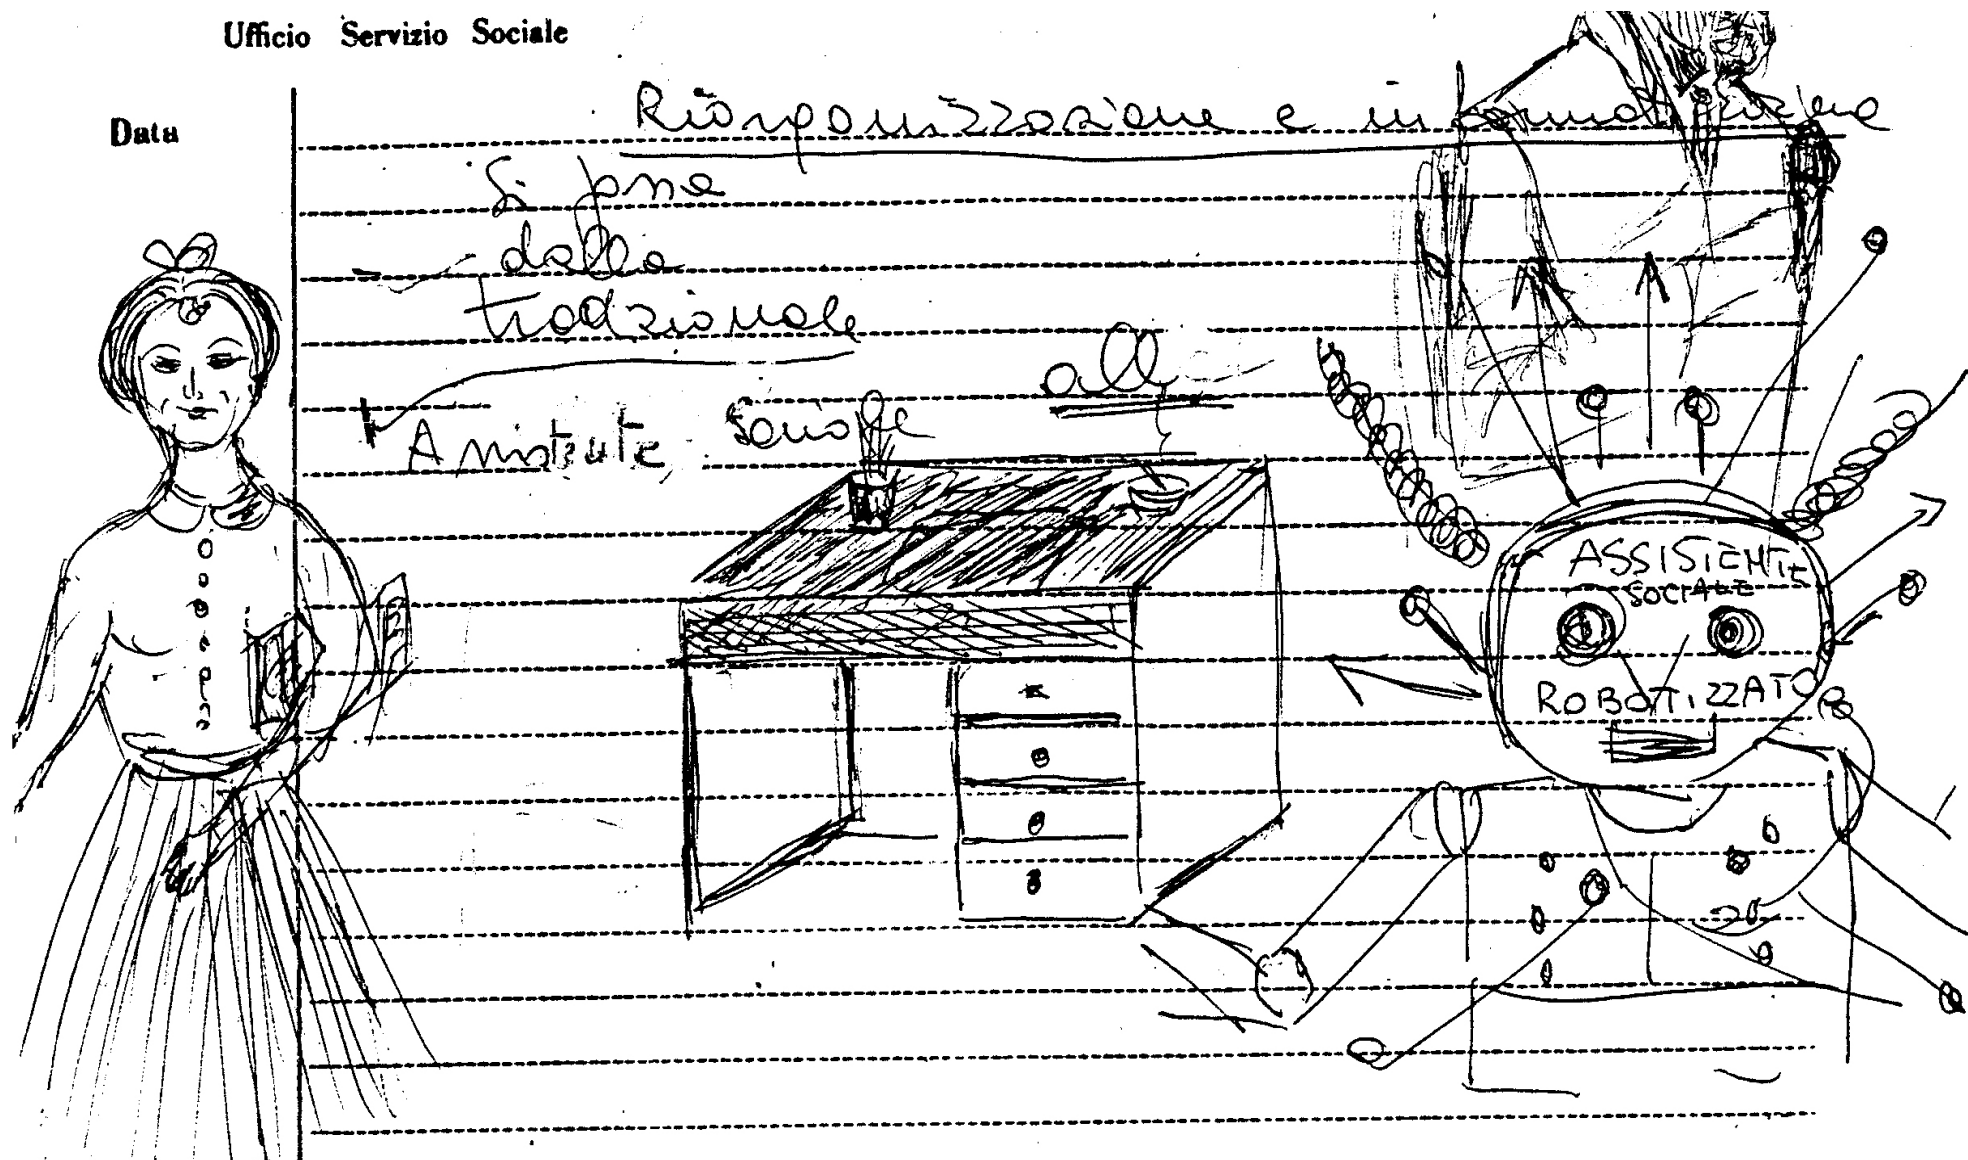 Ufficio Servizio Sociale
Data
Riorganizzazione e informatizzazione
Si passa
dalla
tradizionale
Assistente Sociale
all
ASSISTENTE
SOCIALE
ROBOTTIZZATO